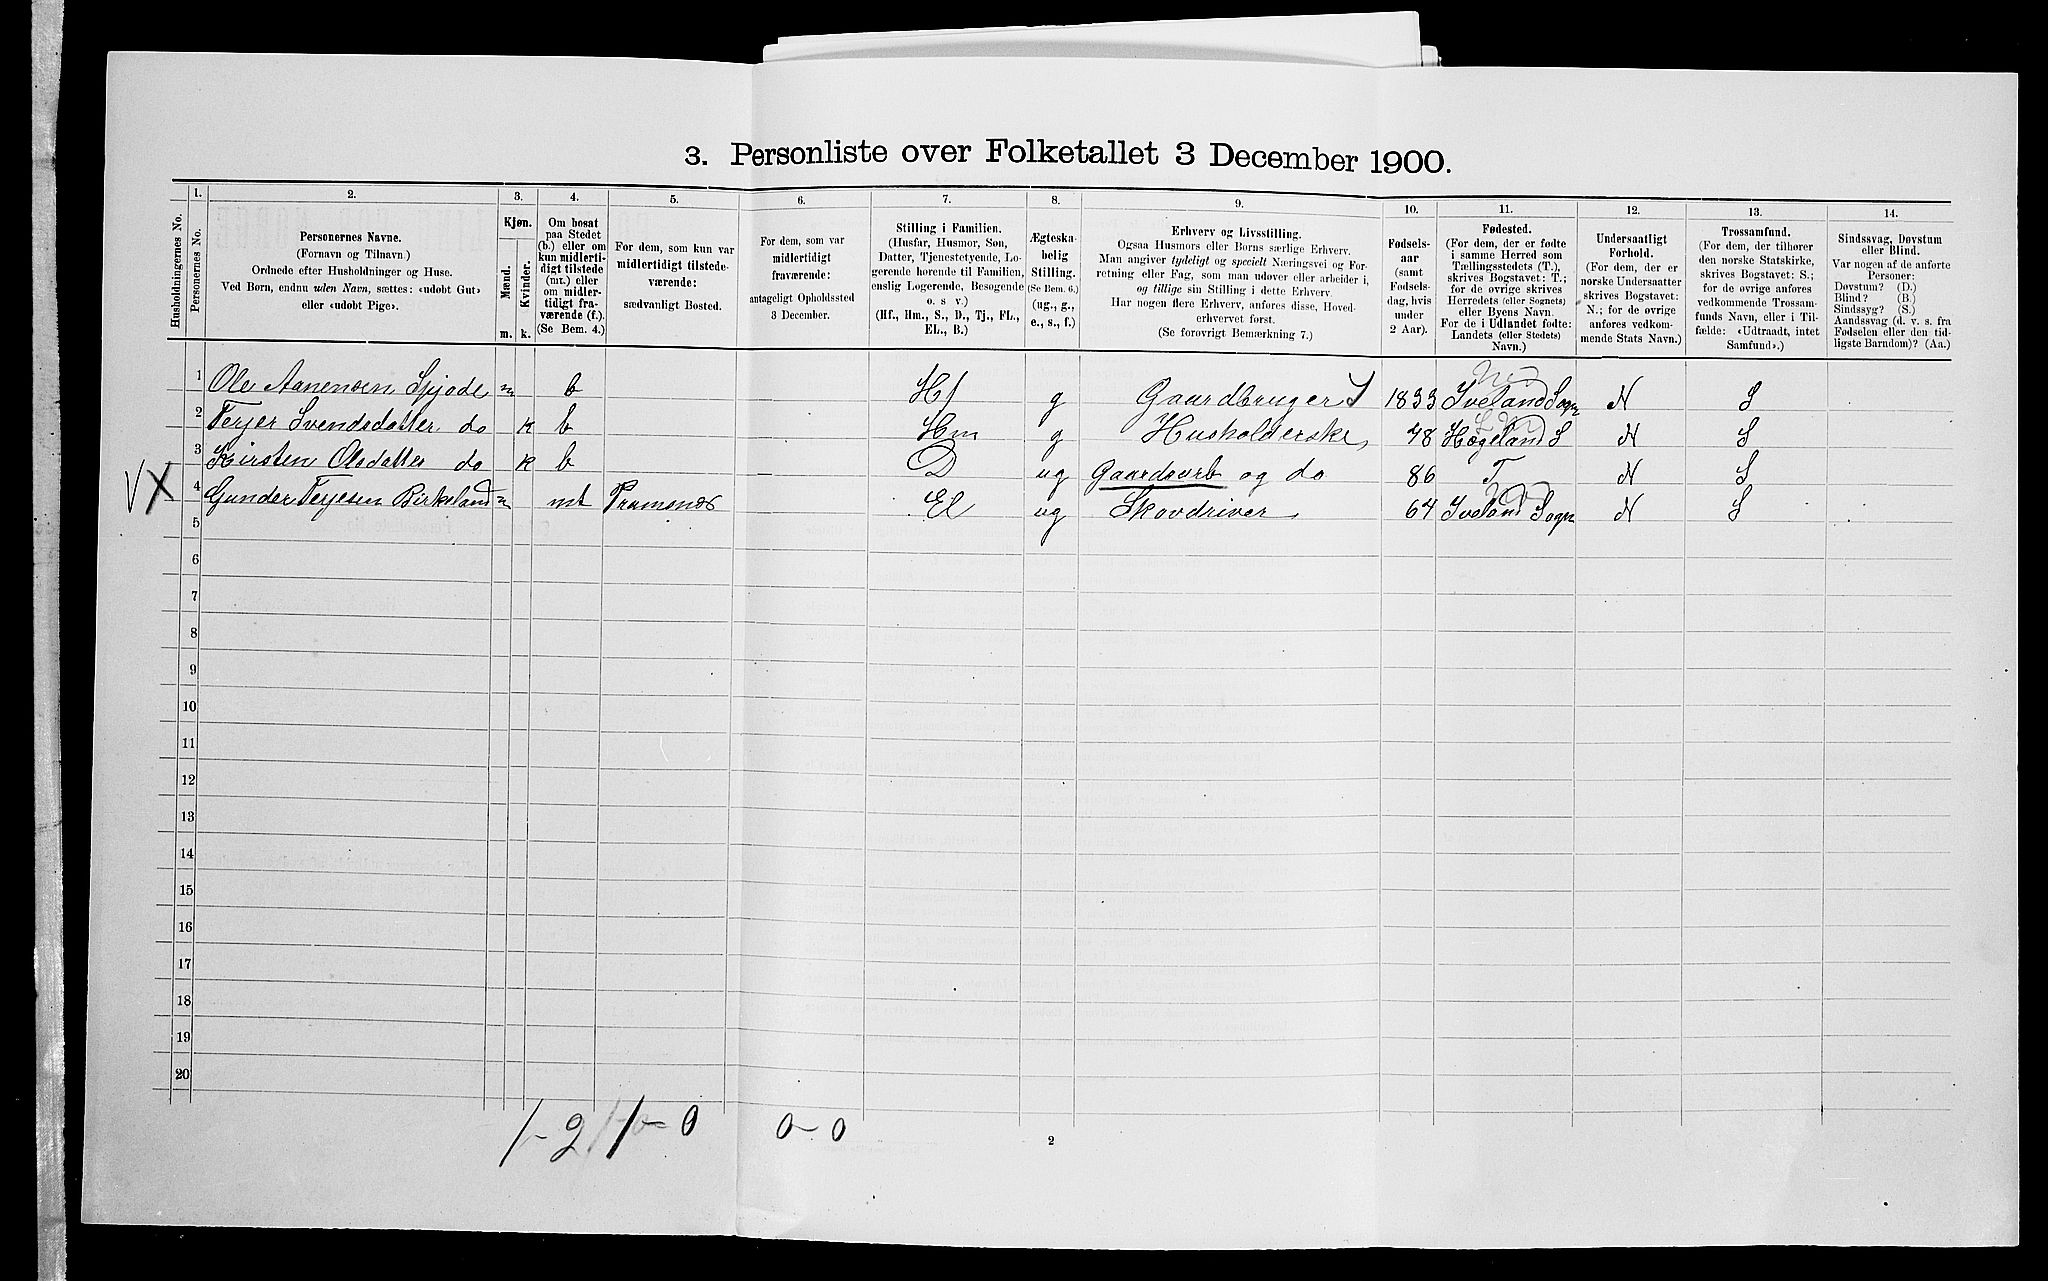 3. Personliste over Folketallet 3 December 1900.
Husholdningernes No.
1.
Personernes No.
2.
Personernes Navne.
(Fornavn og Tilnavn.)
Ordnede efter Husholdninger og Huse.
Ved Børn, endnu uden Navn, sættes: «udobt Gut»
eller «udobt Pige».
3.
Kjøn.
Mænd.
Kvinder.
m. k.
4.
Om bosat
paa Stedet
(b.) eller om
kun midlerti-
digt tilstede
(mt.) eller
om midler-
tidigt fra-
værende (f.).
(Se Bem. 4.)
5.
For dem, som kun var
midlertidigt tilstede-
værende:
sædvanligt Bosted.
6.
For dem, som var
midlertidigt
fraværende:
antageligt Opholdssted
3 December.
7.
Stilling i Familien.
(Husfar, Husmor, Søn,
Datter, Tjenestetyende, Lo-
gerende hørende til Familien,
enslig Logerende, Besøgende
o. s v.)
(Hf., Hm., S., D., Tj., FL.,
EL., B.)
8.
Ægteska-
belig
Stilling.
(Se Bem. 6.)
(ug., g.,
e., s., f.)
9.
Erhverv og Livsstilling.
Ogsaa Husmors eller Børns særlige Erhverv.
Man angiver tydeligt og specielt Næringsvei og For-
retning eller Fag, som man udøver eller arbeider i,
og tillige sin Stilling i dette Erhverv.
Har nogen flere Erhverv, anføres disse, Hoved-
erhvervet først.
(Se forøvrigt Bemærkning 7.)
10.
Fødsels-
aar
(samt
Fødsels-
dag, hvis
under
2 Aar).
11.
Fødested.
(For dem, der er fødte
i samme Herred som
Tællingsstedets (T.),
skrives Bogstavet: T.;
for de øvrige skrives
Herredets (eller Sognets)
eller Byens Navn.
For de i Udlandet fødte:
Landets (eller Stedets)
Navn.)
12.
Undersaatligt
Forhold.
(For dem, der er
norske Undersaatter
skrives Bogstavet:
N.; for de øvrige
anføres vedkom-
mende Stats Navn.)
13.
Trossamfund.
(For dem, der tilhører
den norske Statskirke,
skrives Bogstavet: S.;
for de øvrige anføres
vedkommende Trossam-
funds Navn, eller i Til-
fælde: «Udtraadt, intet
Samfund».)
14.
Sindssvag, Døvstum
eller Blind.
Var nogen af de anførte
Personer:
Døvstum? (D.)
Blind? (B.)
Sindssyg? (S.)
Aandssvag (d. v. s. fra
Fødselen eller den tid-
ligste Barndom)? (Aa.)
1 Ole Aanensen Spjode m b Hf g Gaardbruger S 1833 Iveland Sogn N S
2 Terjer Svendsdatter do k b Hm g Husholderske 48 Hægeland S N S
3 Kirsten Olsdatter do k b D ug Gaardsarb og do 86 T N S
V X 4 Gunder Terjesen Birkeland m mt El ug Skovdriver 64 Iveland Sogn N S
5
6
7
8
9
10
11
12
13
14
15
16
17
18
19
20
1-2 1-0 0-0
2